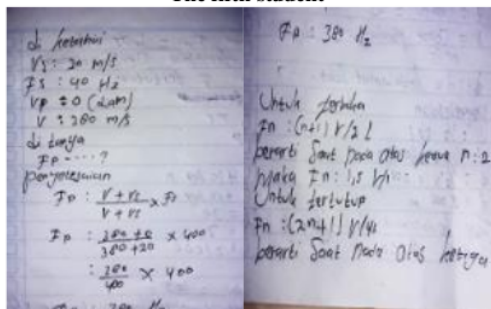 The fifth student
di ketahui
Vs : 20 m/s
Fs : 40 Hz
Vp = 0 (diam)
V : 380 m/s
di tanya
Fp ....?
penyelesaian
Fp : V + Vs / V + Vs × Fs
Fp : 380 + 0 / 380 + 20 × 400
: 380 / 400 × 400
Fp : 380 Hz
Fp : 380 Hz
Untuk terbuka
Fn : (n+1) V/2 L
berarti Saat nada atas kedua n : 2
Maka Fn : 1,5
Untuk tertutup
Fn : (2n+1) V/4L
berarti Saat nada atas ketiga